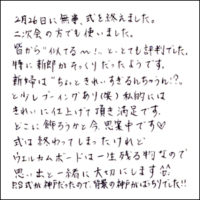 2月26日に無事、式を終えました。
二次会の方でも使いました。
皆から"似てる〜!"、ととても評判でした。
特に新郎がそっくりだったようです。
新婦は"ちょっときれいすぎるんちゃうん!?"
と少しブーイングあり(笑)私的には
きれいに仕上げて頂き満足です。
どこに飾ろうかと今、思案中です♡
式は終わってしまったけれど
ウェルカムボードは一生残る物なので
思い出と一緒に大切にします。
P.S 式が神戸だったので、背景の神戸がばっちりでした!!